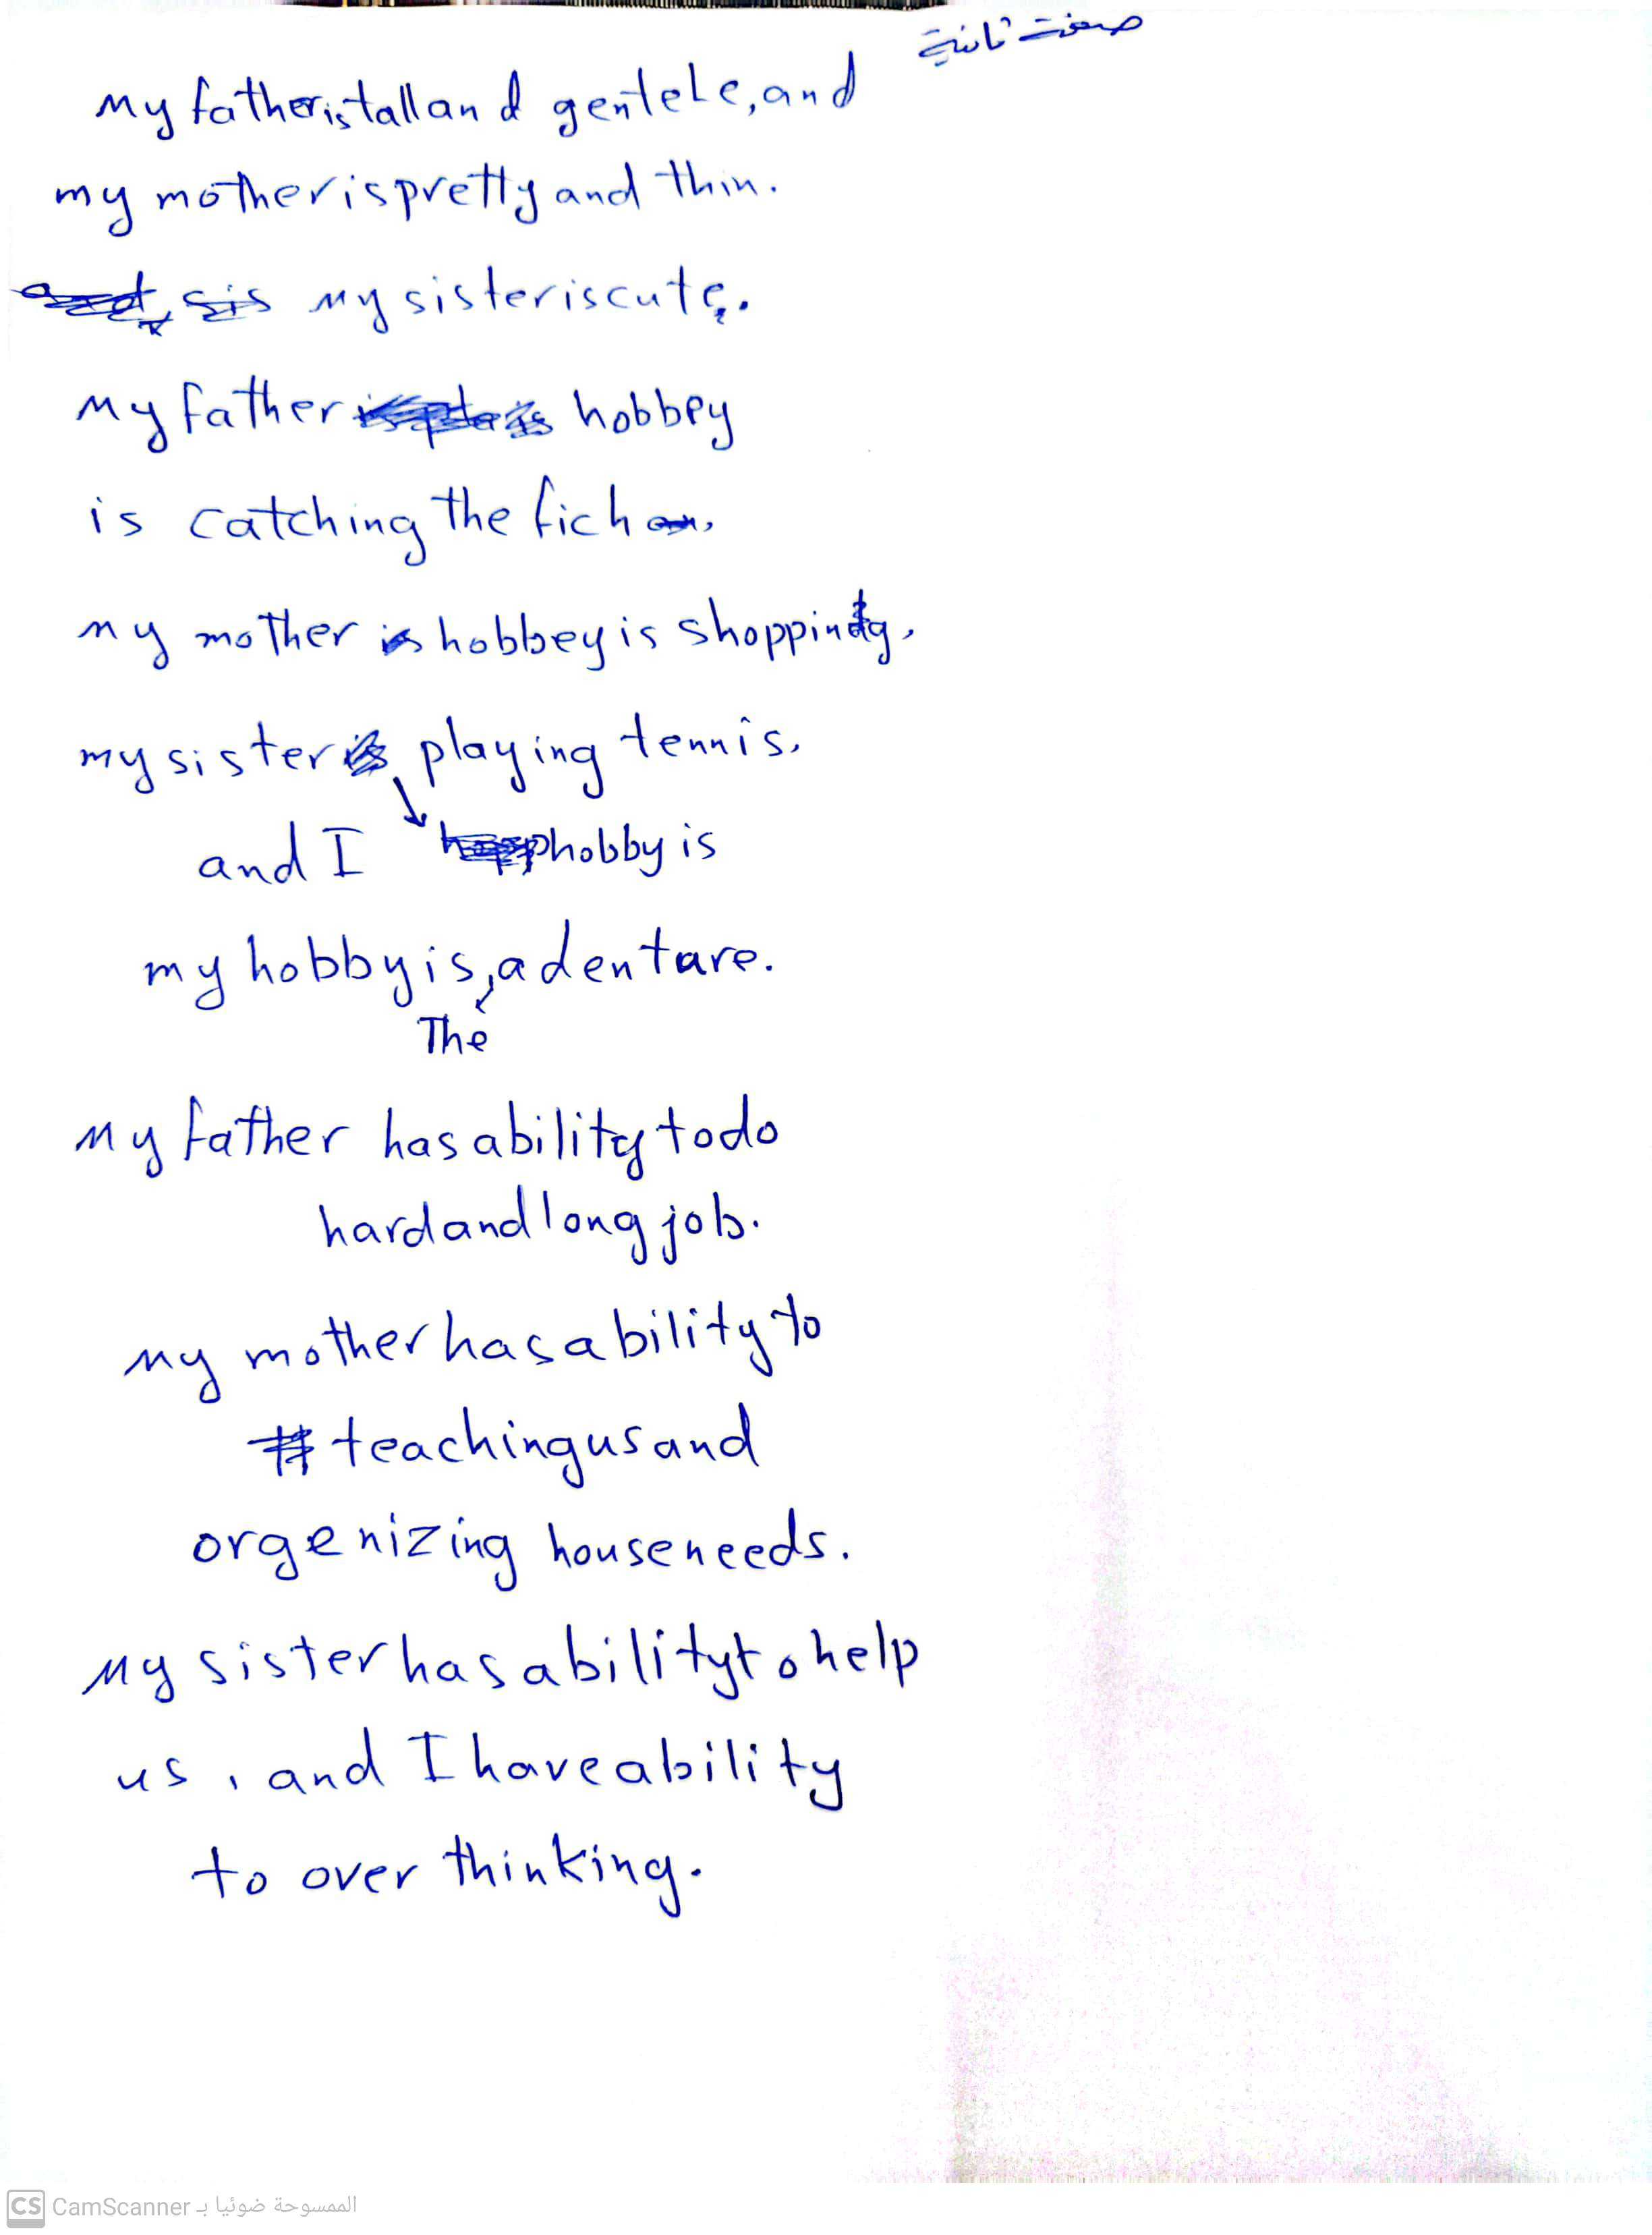 صفحة ثانية
my father is tall and gentele, and
my mother is pretty and thin.
my sister is cute.
my father hobbey
is catching the fich
my mother hobbey is shopping.
my sister playing tennis.
and I hobby is
my hobby is, adentare.
The
my father has ability to do
hard and long job.
my mother has ability to
teaching us and
orgenizing house needs.
my sister has ability to help
us, and I have ability
to over thinking.
CS CamScanner الممسوحة ضوئيا بـ